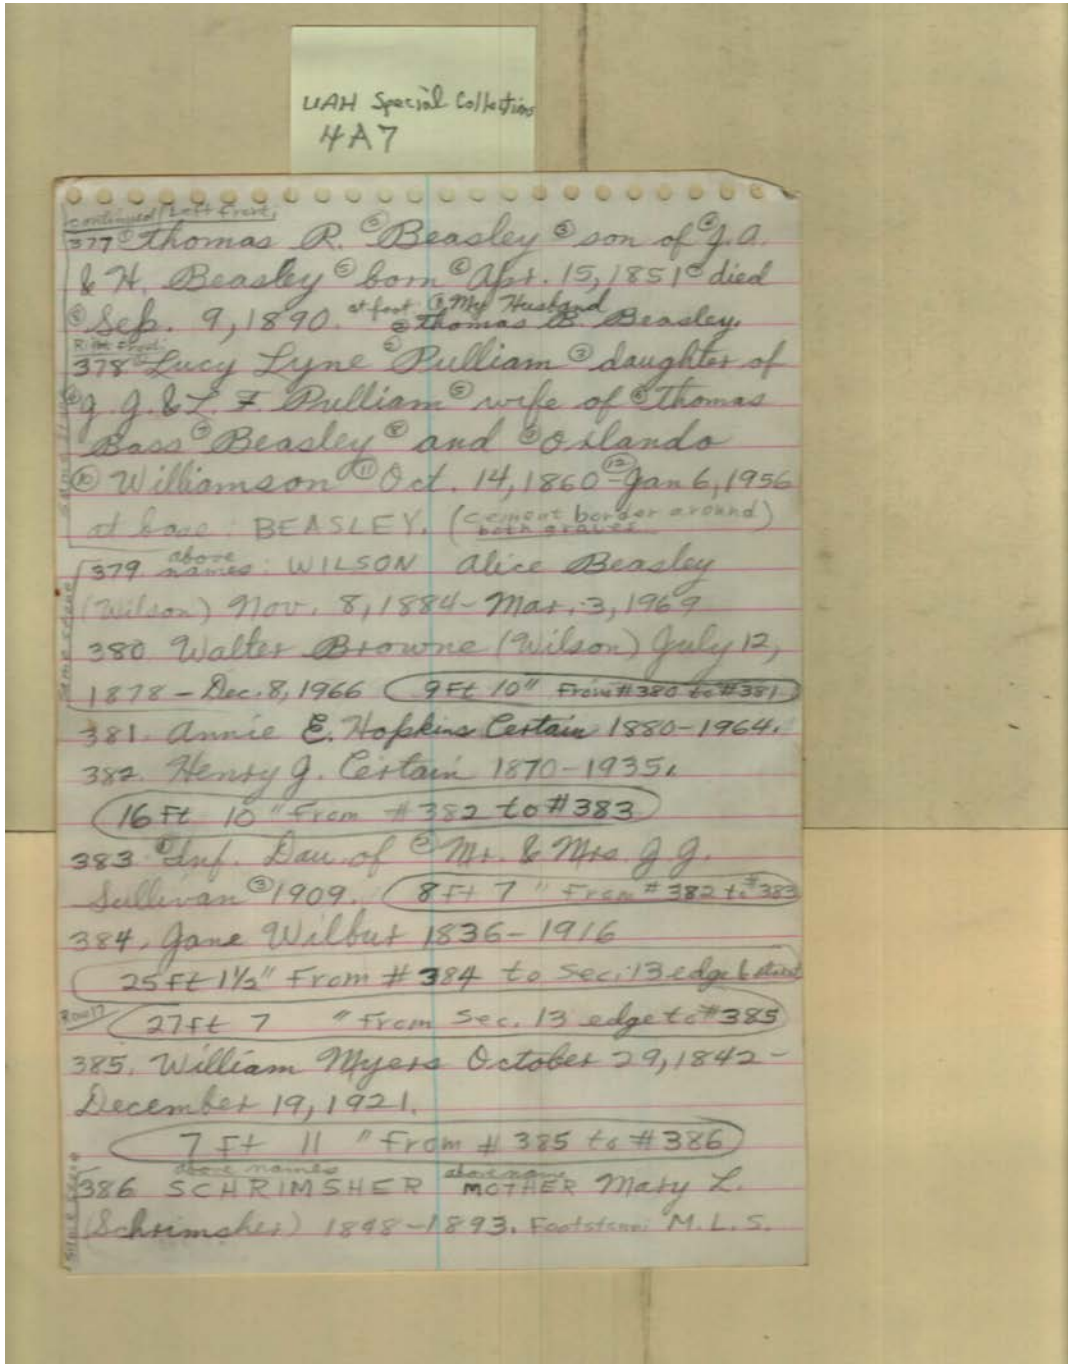 UAH Special Collections
4A7
continued/Left front,
377 ① Thomas R. ② Beasley ③ son of ④ J.A.
& H. Beasley ⑤ born ⑥ Apr. 15, 1851 ⑦ died
⑧ Sep. 9, 1890. at foot ① My Husband
② Thomas B. Beasley.
Right front:
378 ① Lucy Lyne ② Pulliam ③ daughter of
④ J. J. & L. F. Pulliam ⑤ wife of ⑥ Thomas
Bass ⑦ Beasley ⑧ and ⑨ Orlando
⑩ Williamson ⑪ Oct. 14, 1860 - ⑫ Jan 6, 1956
at base: BEASLEY. (cement border around)
both graves
same stone
above
379 names: WILSON Alice Beasley
(Wilson) Nov. 8, 1884 - Mar. 3, 1969
380 Walter Browne (Wilson) July 12,
1878 - Dec. 8, 1966 9 Ft 10" From #380 to #381
same stone
381. Annie E. Hopkins Certain 1880-1964.
382. Henry J. Certain 1870-1935.
16 Ft 10" From #382 to #383
383 ① Inf. Dau. of ② Mr. & Mrs. J. J.
Sullivan ③ 1909. 8 Ft 7" From #382 to #383
384. Jane Wilbur 1836-1916
25 Ft 1½" From #384 to Sec. 13 edge
27 Ft 7 " From Sec. 13 edge to #385
385. William Myers October 29, 1842 -
December 19, 1921.
7 Ft 11 " From #385 to #386
above names above name
386 SCHRIMSHER MOTHER Mary L.
(Schrimsher) 1848-1893. Footstone: M.L.S.